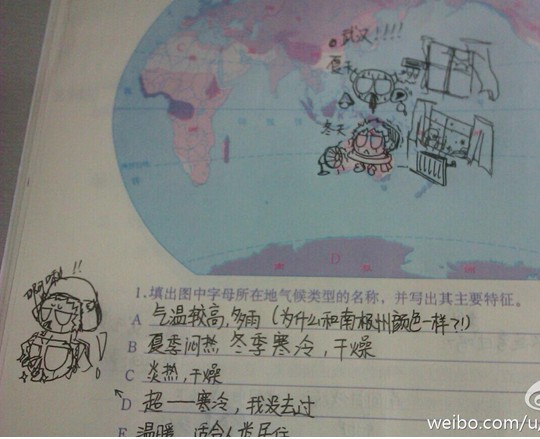 武汉!!!!
夏天
冬天
D
啊啾!!
1.填出图中字母所在地气候类型的名称，并写出其主要特征。
A 气温较高,多雨(为什么和南极州颜色一样?!)
B 夏季闷热 冬季寒冷,干燥
C 炎热,干燥
D 超——寒冷,我没去过
E 温暖 适合人类居住
weibo.com/u/